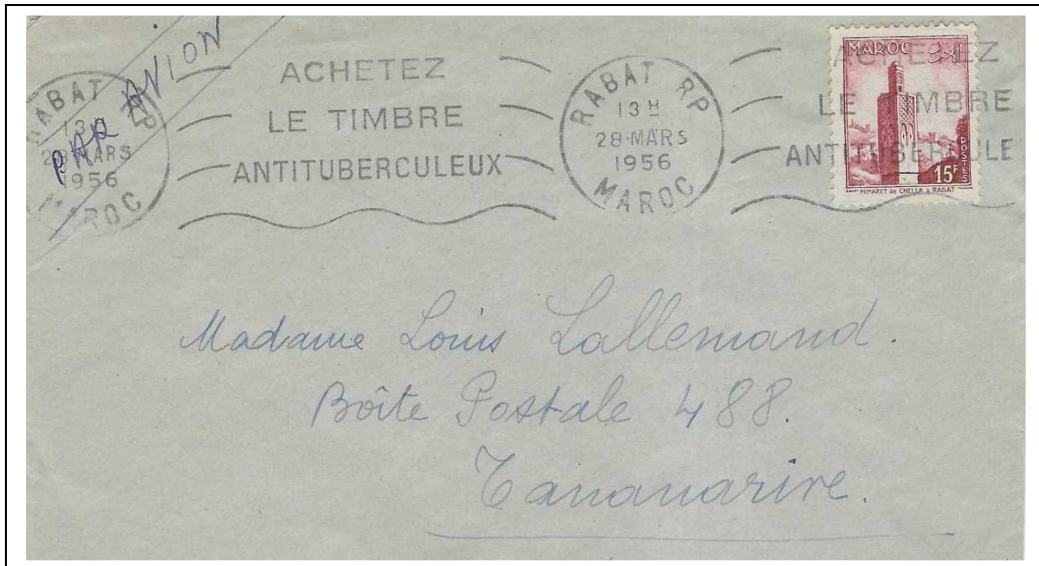 PAR AVION
RABAT RP
13H
28-MARS
1956
MAROC
ACHETEZ
LE TIMBRE
ANTITUBERCULEUX
RABAT RP
13H
28-MARS
1956
MAROC
ACHETEZ
LE TIMBRE
ANTITUBERCULE
MAROC
POSTES
15F
MINARET de CHELLA à RABAT
Madame Louis Lallemand.
Boîte Postale 488.
Tananarive.